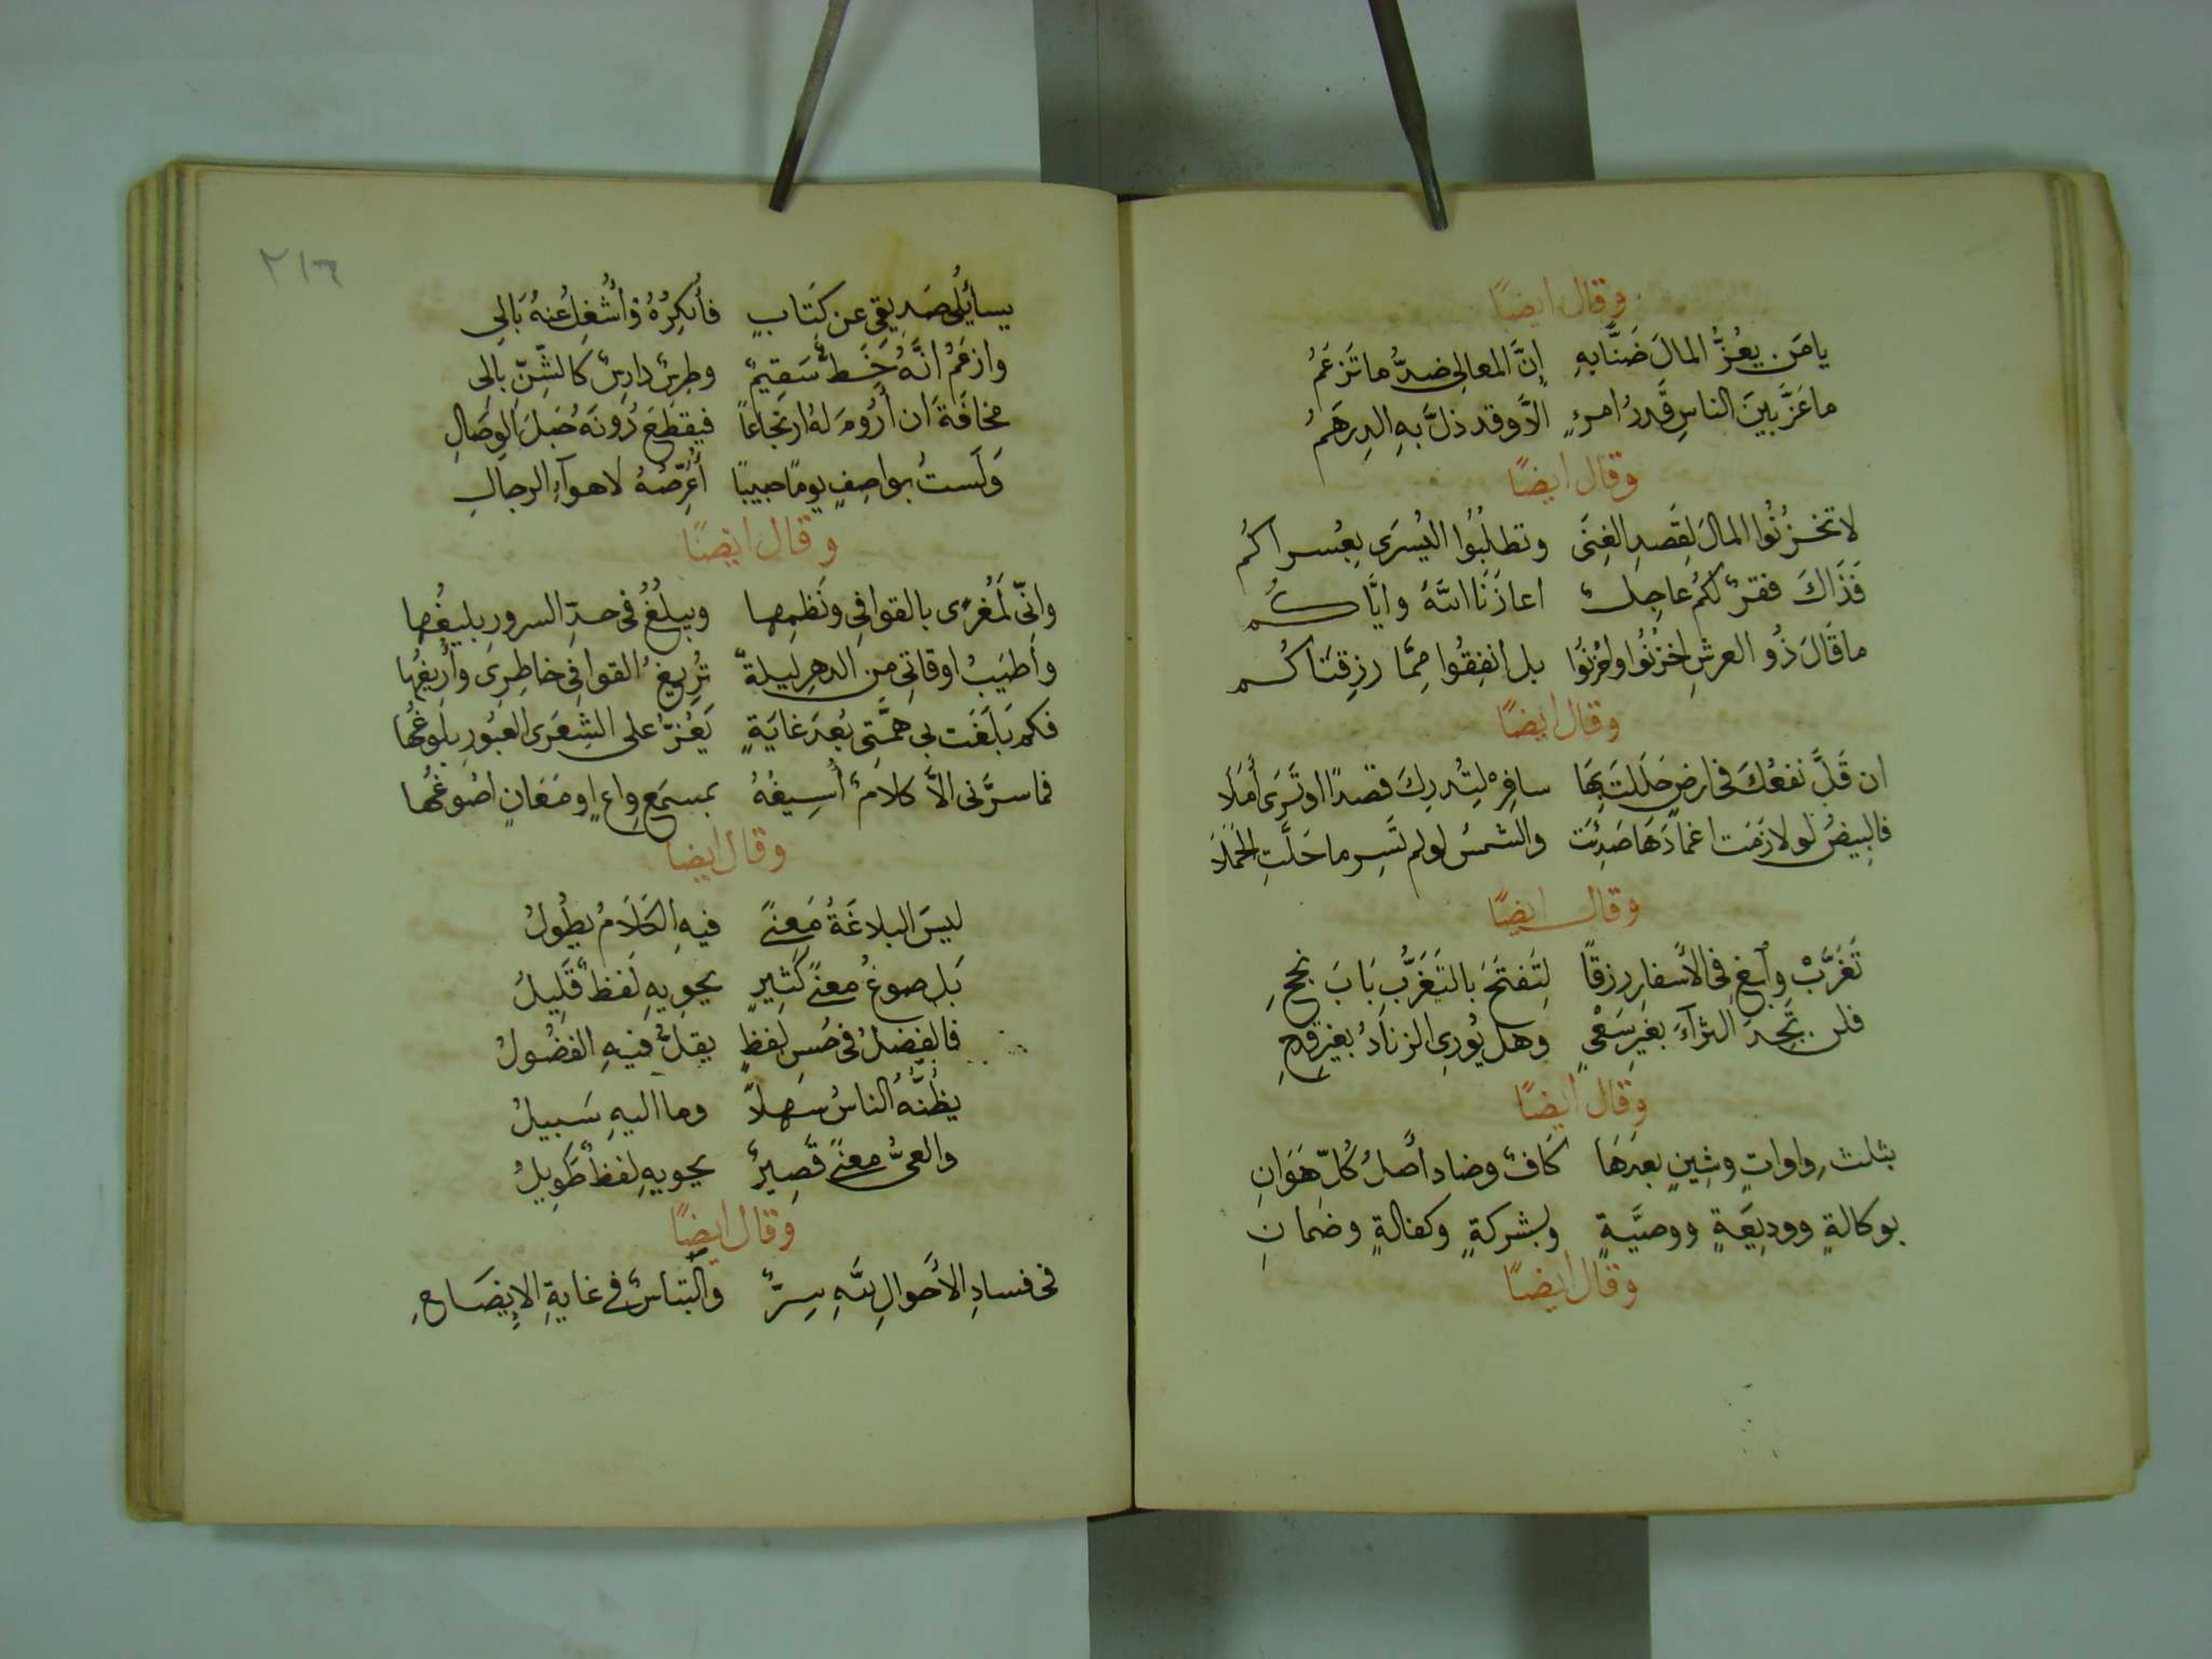 وقال ايضًا
يا مَن يعُزُّ المالَ ضَنًّا بهِ إنَّ المعالي ضدُّ ما تَزعَمُ
ما عَزَّ بينَ الناسِ قَدرُ امرءٍ الَّا وقد ذلَّ بهِ الدِرهَمُ
وقال ايضًا
لا تخزُنُوا المالَ لقَصدِ الغِنَى وتطلُبُوا اليُسرَى بِعُسراكُم
فَذَاكَ فقرٌ لكُم عاجِلٌ اعاذَنَا اللهُ وايَّاكُم
ما قَالَ ذُو العرشِ اخزُنُوا واحزُنُوا بل انفِقُوا مِمَّا رزقنَاكُم
وقال ايضًا
ان قَلَّ نفعُكَ في ارضٍ حَلَلتَ بِهَا سافِرْ لِتُدرِكَ قصدًا او تَرَى أَمَلَا
فالبِيضُ لو لازَمَت اغمادَهَا صَدِئَت والشمسُ لو لم تَسِر ما حَلَّتِ الحَمَلَا
وقال ايضًا
تَغَرَّبْ وأبغِ في الأسفارِ رزقًا لِتَفتَحَ بالتَغَرُّبِ بَابَ نجحِ
فلن تَجِدَ الثرآءَ بغَيرِ سَعْيٍ وهل يُورِى الزنادُ بغيرِ قدحِ
وقال ايضًا
بثلثِ واواتٍ وشِينٍ بعدَهَا كَافٌ وضاد أصلُ كُلِّ هَوَانِ
بوكالةٍ ووديعَةٍ ووصيَّةٍ وبشركةٍ وكفالةٍ وضمانِ
وقال ايضًا
٢١٦
يسائِلُنى صَدِيقِى عن كِتَابٍ فأُنكِرُهُ وأُشْغِلُ عنهُ بَالِى
وازعَمُ انَّهُ خَطٌّ سَقِيمٌ وطِرسٌ دارِسٌ كالشَّنِّ بالِى
مخافَةَ ان أرُومَ لهُ ارتجاعًا فيقطَعَ دُونَهُ حَبلَ الوِصَالِ
وَلَستُ بواصِفٍ يومًا حبيبًا أعَرِّضُهُ لاهوآءِ الرجالِ
وقال ايضًا
وانِّى لَمُغرًى بالقوافِى ونَظمِها ويبلُغُ فى حدِّ السرورِ بليغُها
وأطيَبُ اوقاتِى من الدهرِ ليلةٌ تُرِيغُ القوافِى خاطِرِى وأُرِيغُها
فكم بَلَغَت بى همَّتِى بُعدَ غايَةٍ يَعُزُّ على الشِعرَى العَبُورِ بلوغُها
فما سرَّنى الاَّ كلامٌ أُسِيغُهُ بمسمَعِ واعٍ او مَعَانٍ اصُوغُها
وقال ايضا
ليسَ البلاغَةُ مَعنًى فيهِ الكَلَامُ يطُولُ
بَل صوغُ معنًى كَثِيرٍ يحوِيهِ لَفظٌ قَلِيلُ
فالفضلُ فى حُسنِ لفظٍ يقلُّ فيهِ الفضُولُ
يظُنُّهُ الناسُ سَهلاً وما اليهِ سَبيلُ
والعىُّ معنًى قَصِيرٌ يحويهِ لفظٌ طَوِيلُ
وقال ايضًا
فى فسادِ الأحَوالِ للهِ سِرٌّ والتباسٌ فى غايةِ الإيضَاحِ